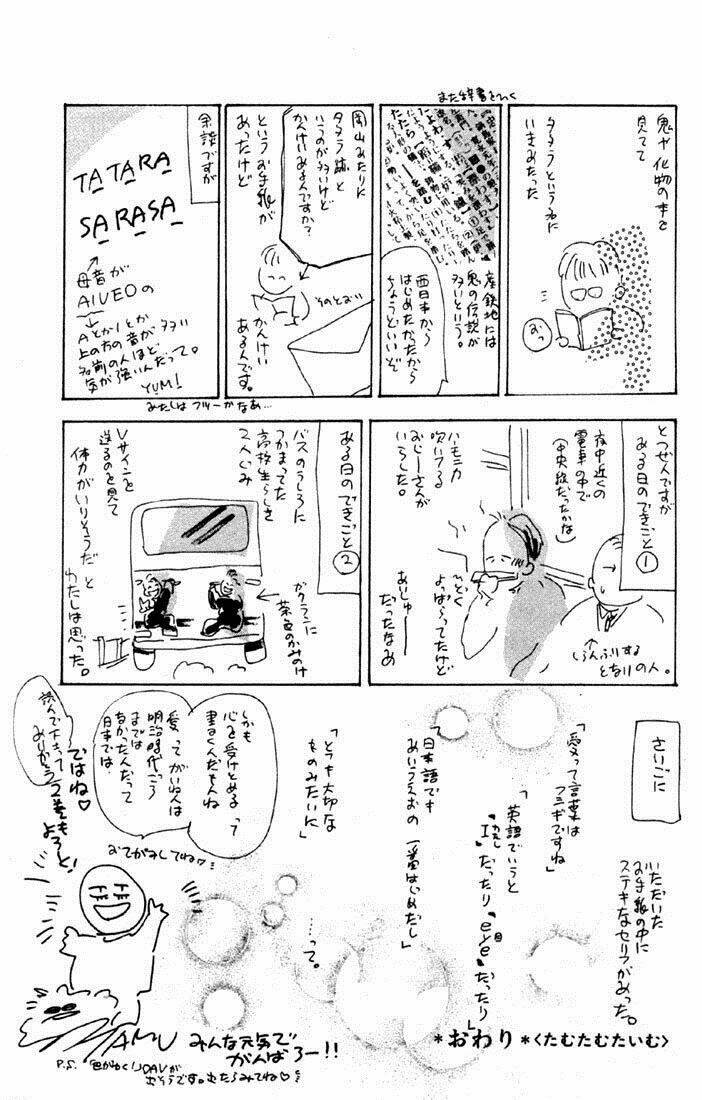 鬼や化物の本を
見てて
タタラという名に
いきあたった
おっ
また辞書をひく
産鉄地には
鬼の伝説が
多いという。
西日本から
はじめたかったから
ちょうどいいぞ
岡山あたりに
タタラ跡と
いうのが多いけど
かんけいあるんですか?
というお手紙が
あったけど
そのとおり
かんけい
あるんです。
余談ですが
TATARA
SARASA
母音が
AIUEOの
AとかIとか
上の方の音が多い
名前の人ほど
気が強いんだって。
YUMI
わたしはブルーかなあ…
とつぜんですが
ある日のできごと①
夜中近くの
電車の中で
(中央線だったかな)
ハーモニカ
吹いてる
おじーさんが
いらした。
ひどく
よっぱらってたけど
あいしゅー
だったなあ
しらんふりする
となりの人。
ある日のできごと②
バスのうしろに
つかまってた
高校生らしき
2人ぐみ
ガクランに
茶色のかみのけ
Vサインを
送るのを見て
体力がいりそうだ と
わたしは思った。
さいごに
いただいた
お手紙の中に
ステキなセリフがあった。
「愛って言葉は
フシギですね」
「英語でいうと
"I"だったり"eye"だったり」
「日本語でも
あいうえおの 一番はじめだし」
「とても大切な
ものみたいに」
……って。
しかも
心を受けとめる って
書くんだもんね
愛 って がいねんは
明治時代ごろ
までは
なかったんだって
日本では
おてがみしてね♡
読んで下さって
ありがとう
ではね♡
2巻もよろしく!
みんな元気で
がんばろー!!
*おわり*<たむたむたいむ>